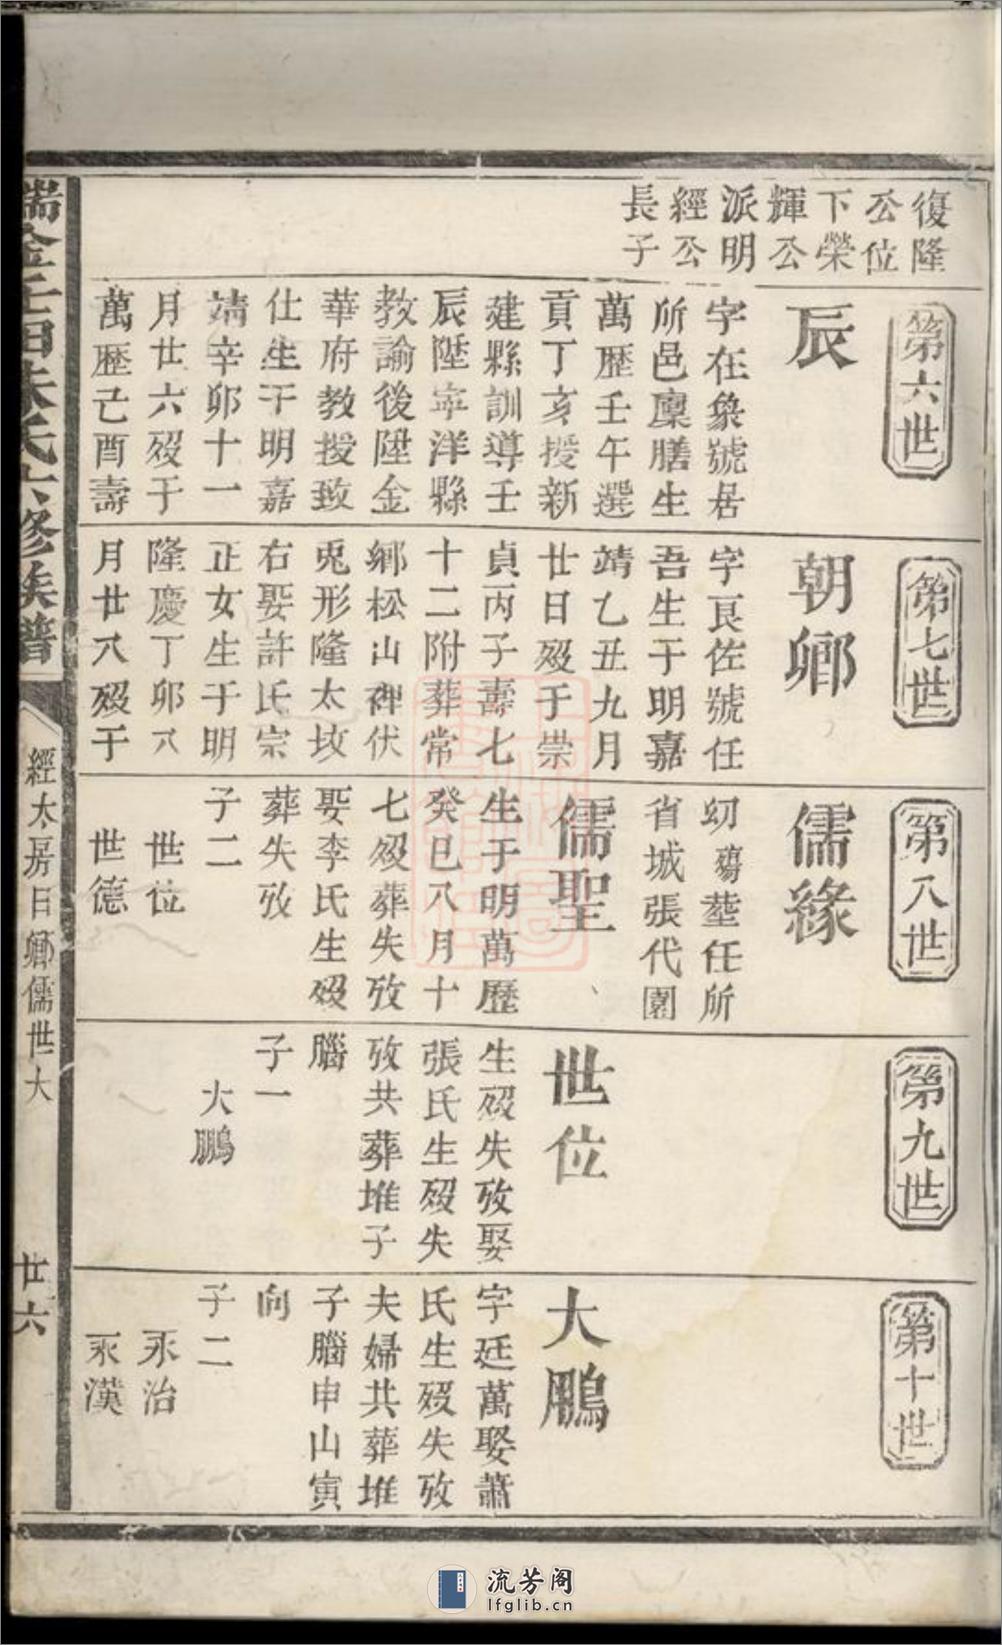 復隆
公位
下榮
輝公
派明
經公
長子
第六世
辰
字在象號居
所邑廩膳生
萬歷壬午選
貢丁亥授新
建縣訓導壬
辰陞寕洋縣
教諭後陞金
華府教授致
仕生于明嘉
靖辛卯十一
月廿六歿于
萬歷己酉壽
第七世
朝卿
字良佐號任
吾生于明嘉
靖乙丑九月
廿日歿于崇
貞丙子壽七
十二附葬常
鄉松山裨伏
兎形隆太坟
右娶許氏宗
正女生于明
隆慶丁卯六
月廿八歿于
第八世
儒緣
幼殤塟任所
省城張代園
儒聖
生于明萬歷
癸巳八月十
七歿葬失攷
娶李氏生歿
葬失攷
子二
世位
世德
第九世
世位
生歿失攷娶
張氏生歿失
攷共葬堆子
腦
子一
大鵬
第十世
大鵬
字廷萬娶蕭
氏生歿失攷
夫婦共葬堆
子腦申山寅
向
子二
永治
永漢
瑞金壬田朱氏六修族譜
經太房日卿儒世大
廿六
流芳阁
lfglib.cn